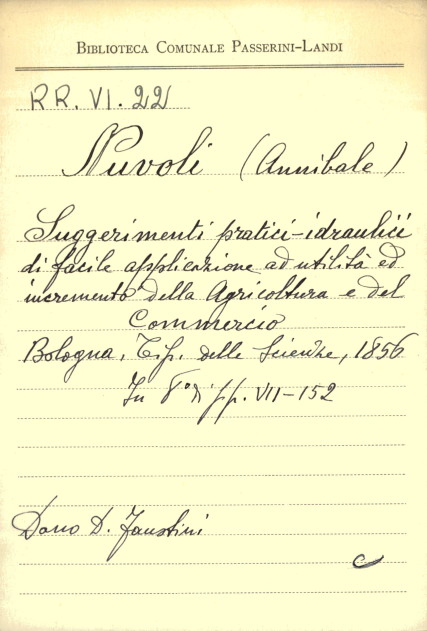 BIBLIOTECA COMUNALE PASSERINI-LANDI
RR. VI. 22
Nuvoli (Annibale)
Suggerimenti pratici-idraulici
di facile applicazione ad utilità ed
incremento della Agricoltura e del
Commercio
Bologna, Tip. delle Scienze, 1856
In 8° pp. VII-152
Dono D. Faustini
C